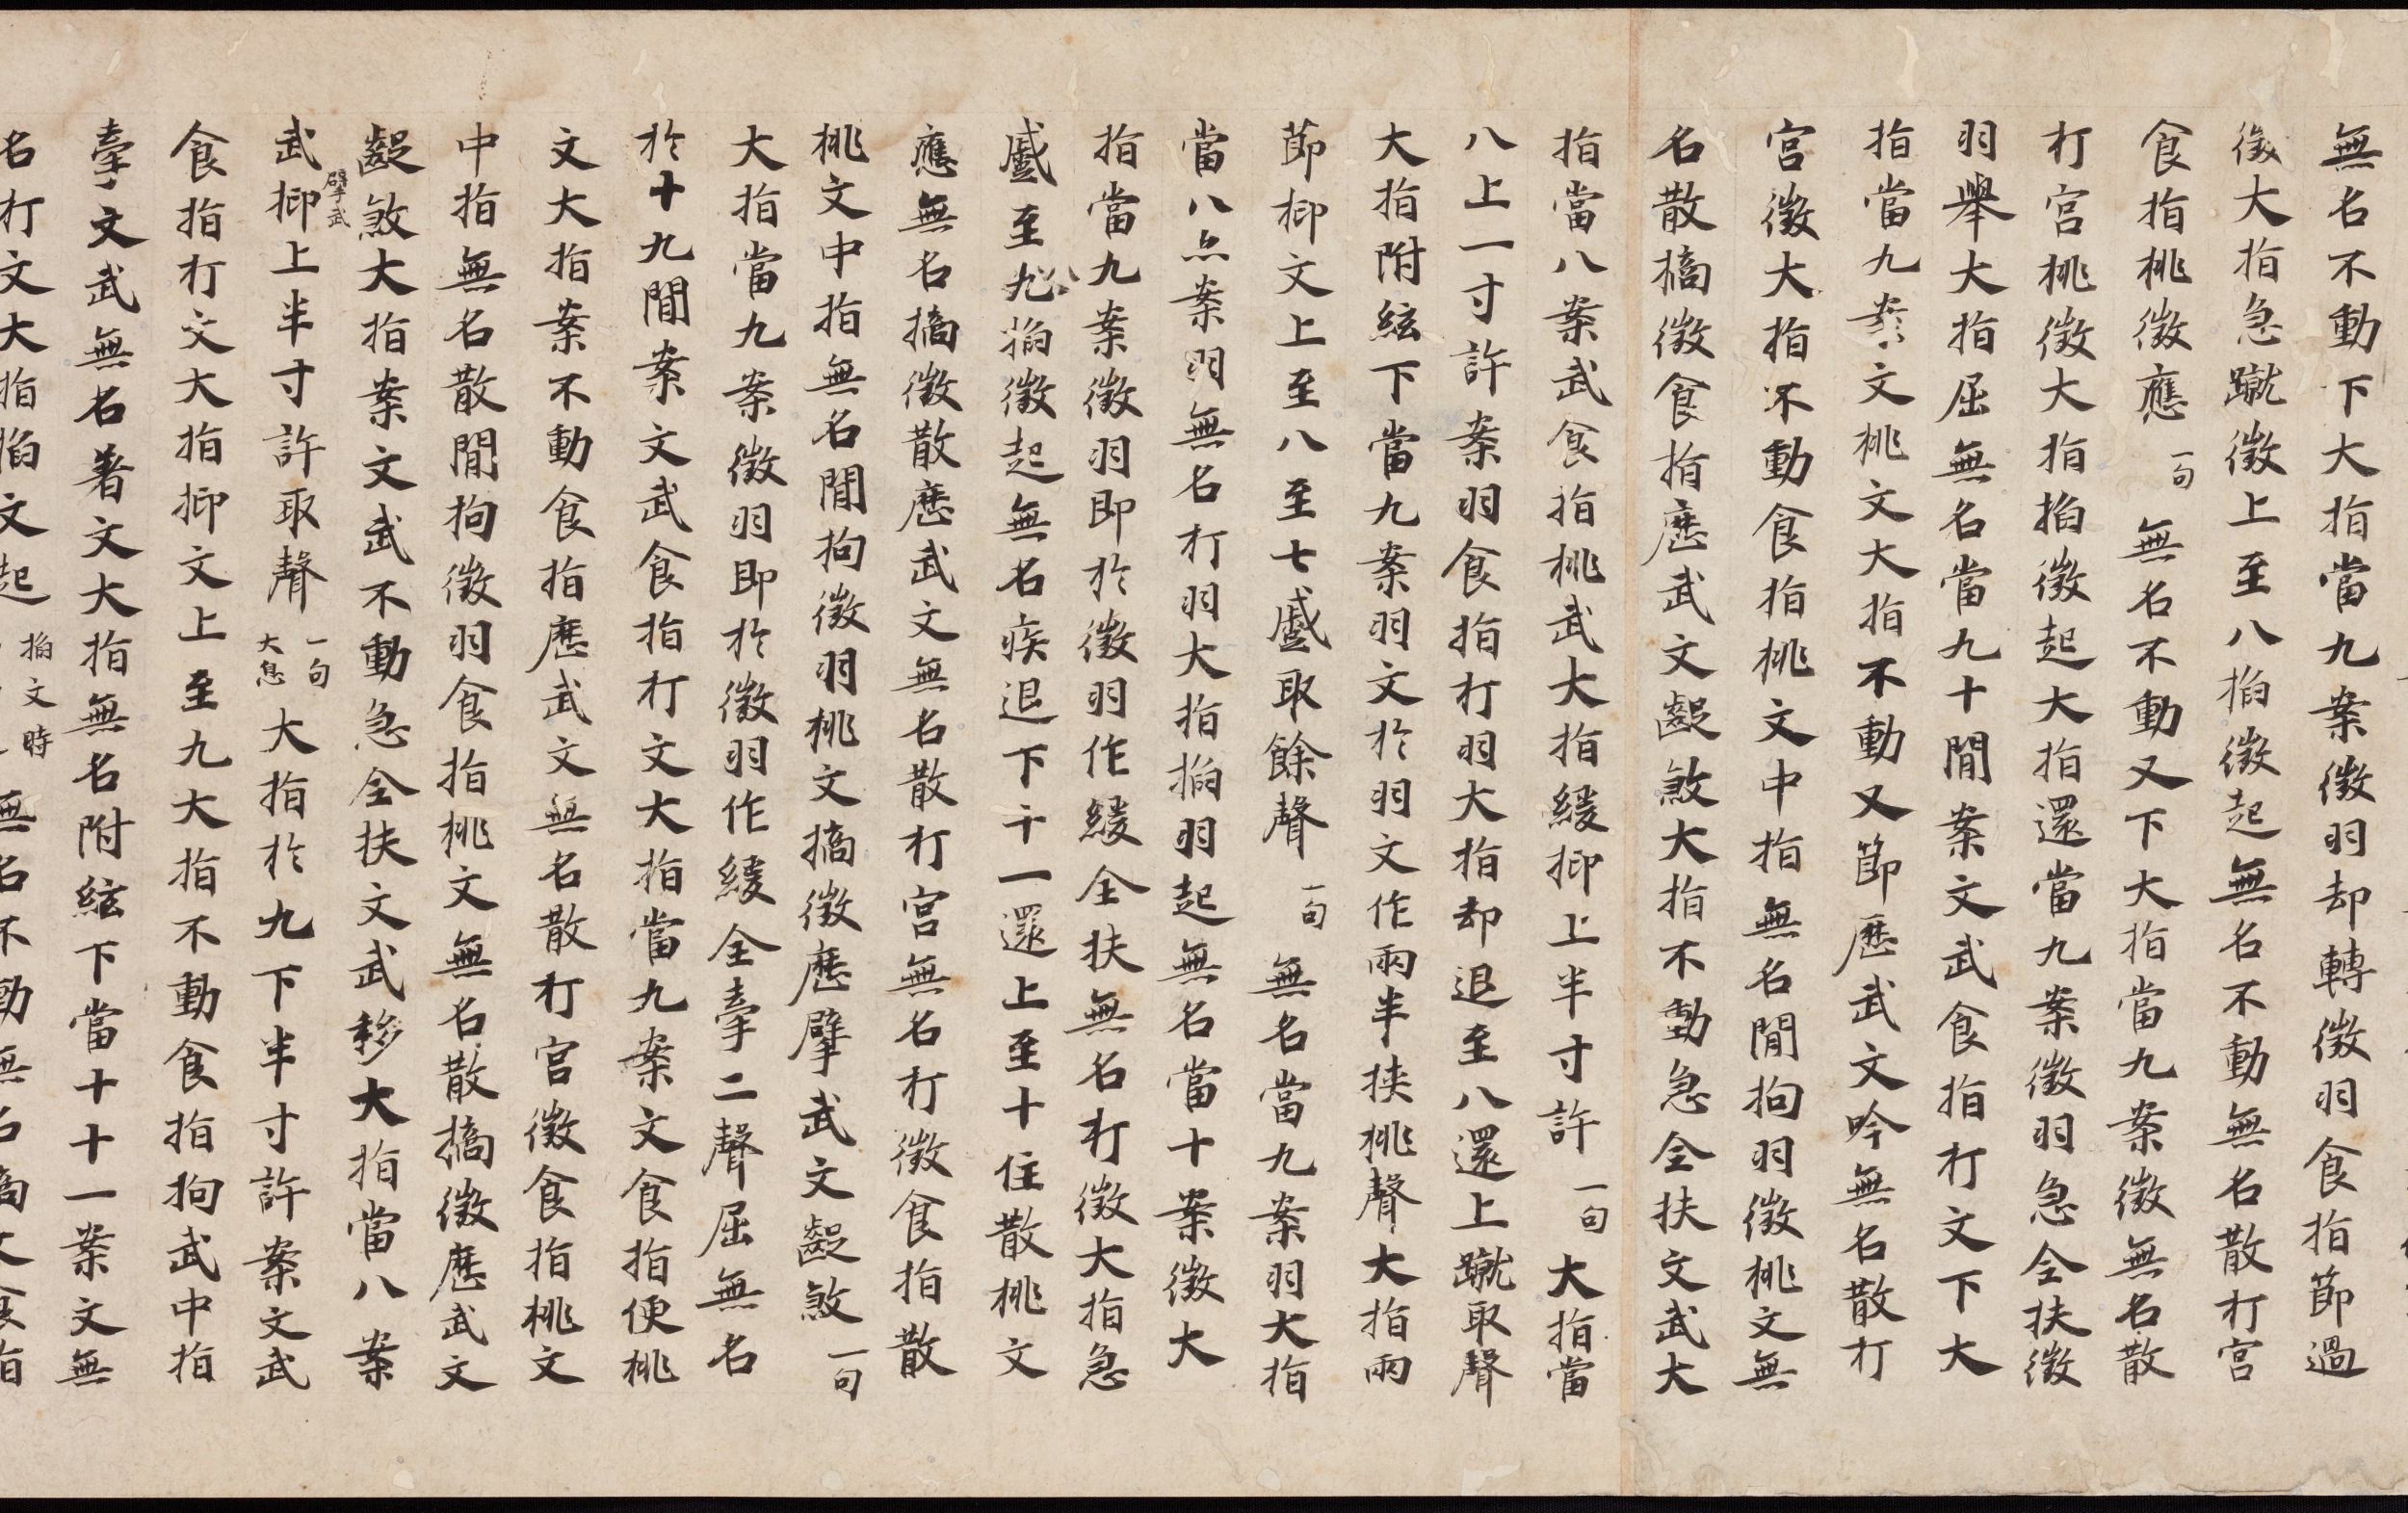 無名不動下大指當九案徵羽却轉徵羽食指節過
徵大指急蹴徵上至八掐徵起無名不動無名散打宮
食指挑徵應一句無名不動又下大指當九案徵無名散
打宮挑徵大指掐徵起大指還當九案徵羽急全扶徵
羽舉大指屈無名當九十間案文武食指打文下大
指當九案文挑文大指不動又節歷武文吟無名散打
宮徵大指不動食指挑文中指無名間拘羽徵挑文無
名散擿徵食指歷武文齪煞大指不動急全扶文武大
指當八案武食指挑武大指緩抑上半寸許一句大指當
八上一寸許案羽食指打羽大指却退至八還上蹴取聲
大指附絃下當九案羽文於羽文作兩半挾挑聲大指兩
節抑文上至八至七蹙取餘聲一句無名當九案羽大指
當八案羽無名打羽大指掐羽起無名當十案徵大
指當九案徵羽即於徵羽作緩全扶無名打徵大指急
蹙至八掐徵起無名疾退下十一還上至十住散挑文
應無名擿徵散歷武文無名散打宮無名打徵食指散
挑文中指無名間拘徵羽挑文擿徵歷擘武文齪煞一句
大指當九案徵羽即於徵羽作緩全牽二聲屈無名
於十九間案文武食指打文大指當九案文食指便挑
文大指案不動食指歷武文無名散打宮徵食指挑文
中指無名散間拘徵羽食指挑文無名散擿徵歷武文
齪煞大指案文武不動急全扶文武移大指當八案
擘武
武抑上半寸許取聲一句大息大指於九下半寸許案文武
食指打文大指抑文上至九大指不動食指拘武中指
牽文武無名著文大指無名附絃下當十十一案文無
名打文大指掐文起掐文時無名不動無名擿文食指